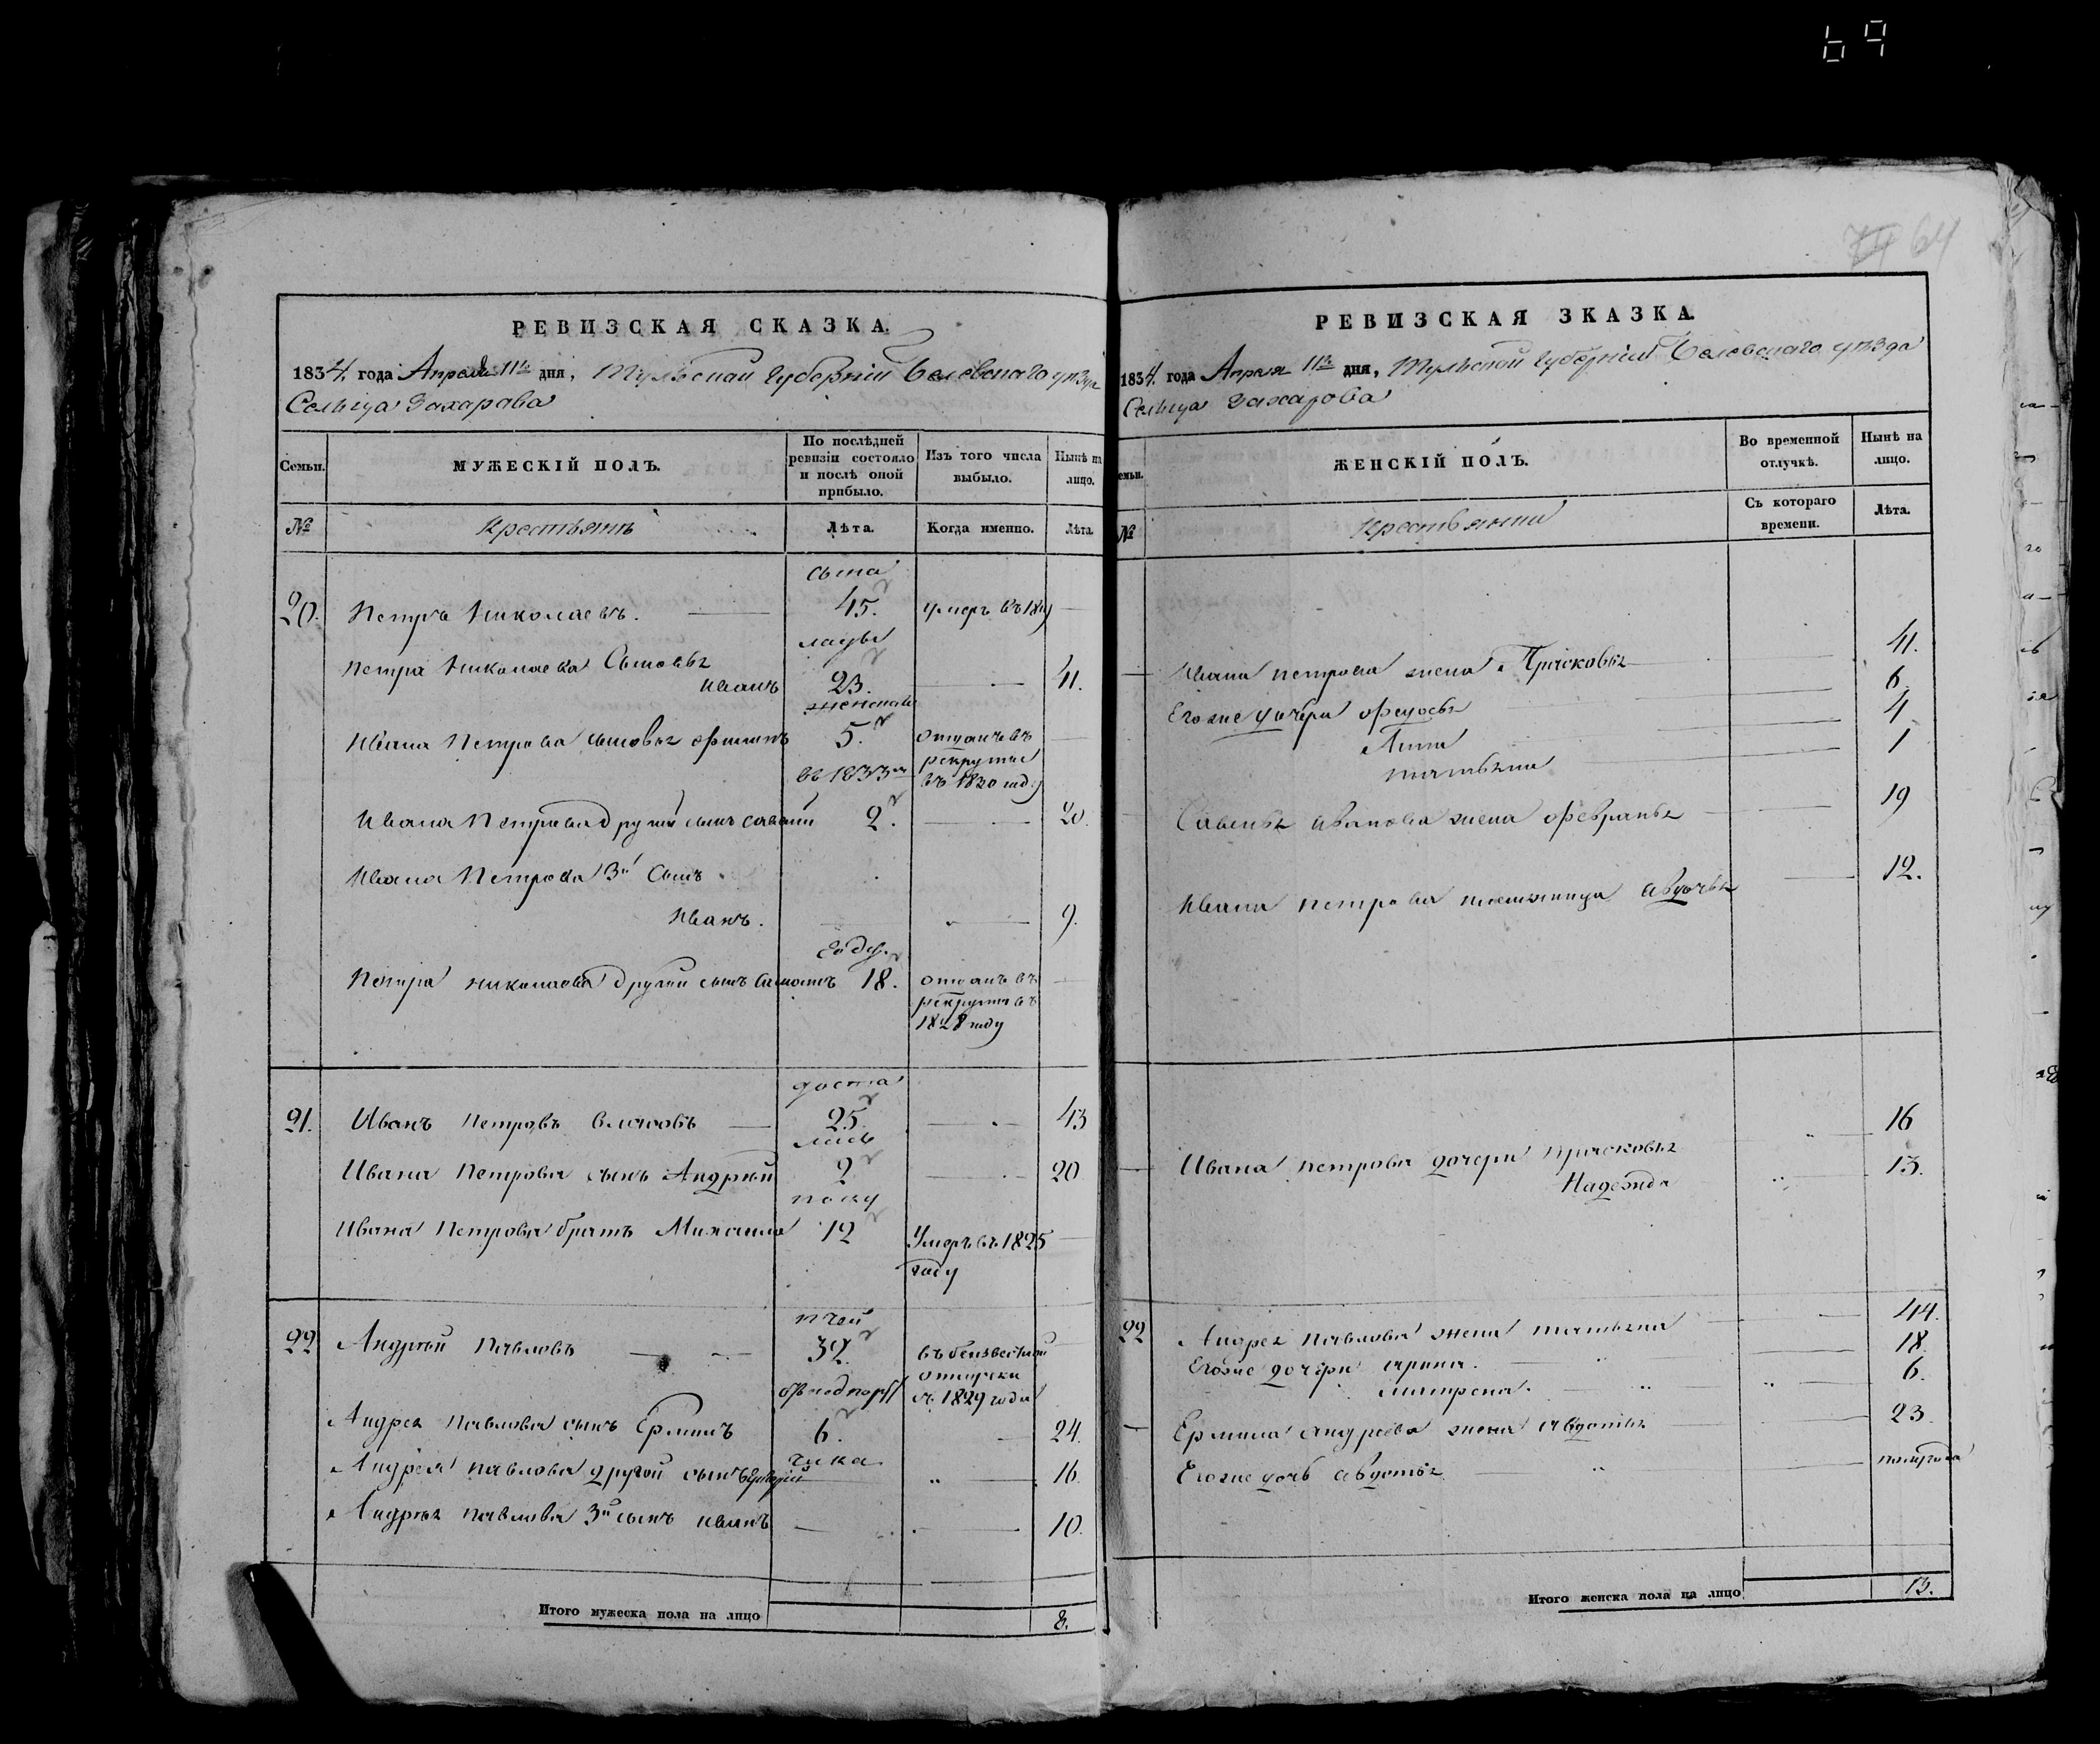 69
64
РЕВИЗСКАЯ СКАЗКА.
1834. года Апреля 11го дня, Тульской Губерніи Белевскаго уезда
Сельца Захарова
Семьи.
МУЖЕСКІЙ ПОЛЪ.
По послѣдней ревизіи состояло и послѣ оной прибыло.
Изъ того числа выбыло.
Нынѣ на лицо.
№
Крестьянъ
Лѣта.
Когда именно.
Лѣта.
сына
20. Петръ Николаевъ. 45. умеръ въ 18
Петра Николаева Сыновья
Иванъ 23. 41.
Ивана Петрова сыновья Филипъ 5. отданъ въ
рекруты
въ 1833м въ 1830 году
Ивана Петрова другой сынъ савелий 2. 20.
Ивана Петрова 3й Сынъ
Иванъ. 9.
Петра николаева другой сынъ 18. отданъ въ
рекруты въ
1828 году
доста
21. Иванъ Петровъ 25. 43
Ивана Петрова сынъ Андрей 2 20
Ивана Петрова братъ Михаила 12 Умеръ въ 1825
году
22 Андрей Павловъ 32. въ безвестной
отлучки
съ 1829 года
Андрея Павлова сынъ Ермилъ 6. 24.
чика
Андрея павлова другой сынъ 16.
Андрея павлова 3й сынъ иванъ 10.
Итого мужеска пола на лицо 8.
РЕВИЗСКАЯ ЗКАЗКА.
1834. года Апреля 11го дня, Тульской Губерніи Белевскаго уезда
Сельца Захарова
емьи.
ЖЕНСКІЙ ПОЛЪ.
Во временной отлучкѣ.
Нынѣ на лицо.
№
Крестьянки
Съ котораго времени.
Лѣта.
Ивана петрова жена Прасковья 41.
Егоже дочери офедосья 6.
Анна 4
татьяна 1
Савелья иванова жена офевранья 19
Ивана петрова племяница авдотья 12.
Ивана петрова дочери прасковья 16
Надежда 13.
22 Андрея павлова жена татьяна 44.
Егоже дочери арина. 18.
матрена. 6.
Ермила андреева жена авдотья 23.
Егоже дочь авдотья полугода
Итого женска пола на лицо 13.